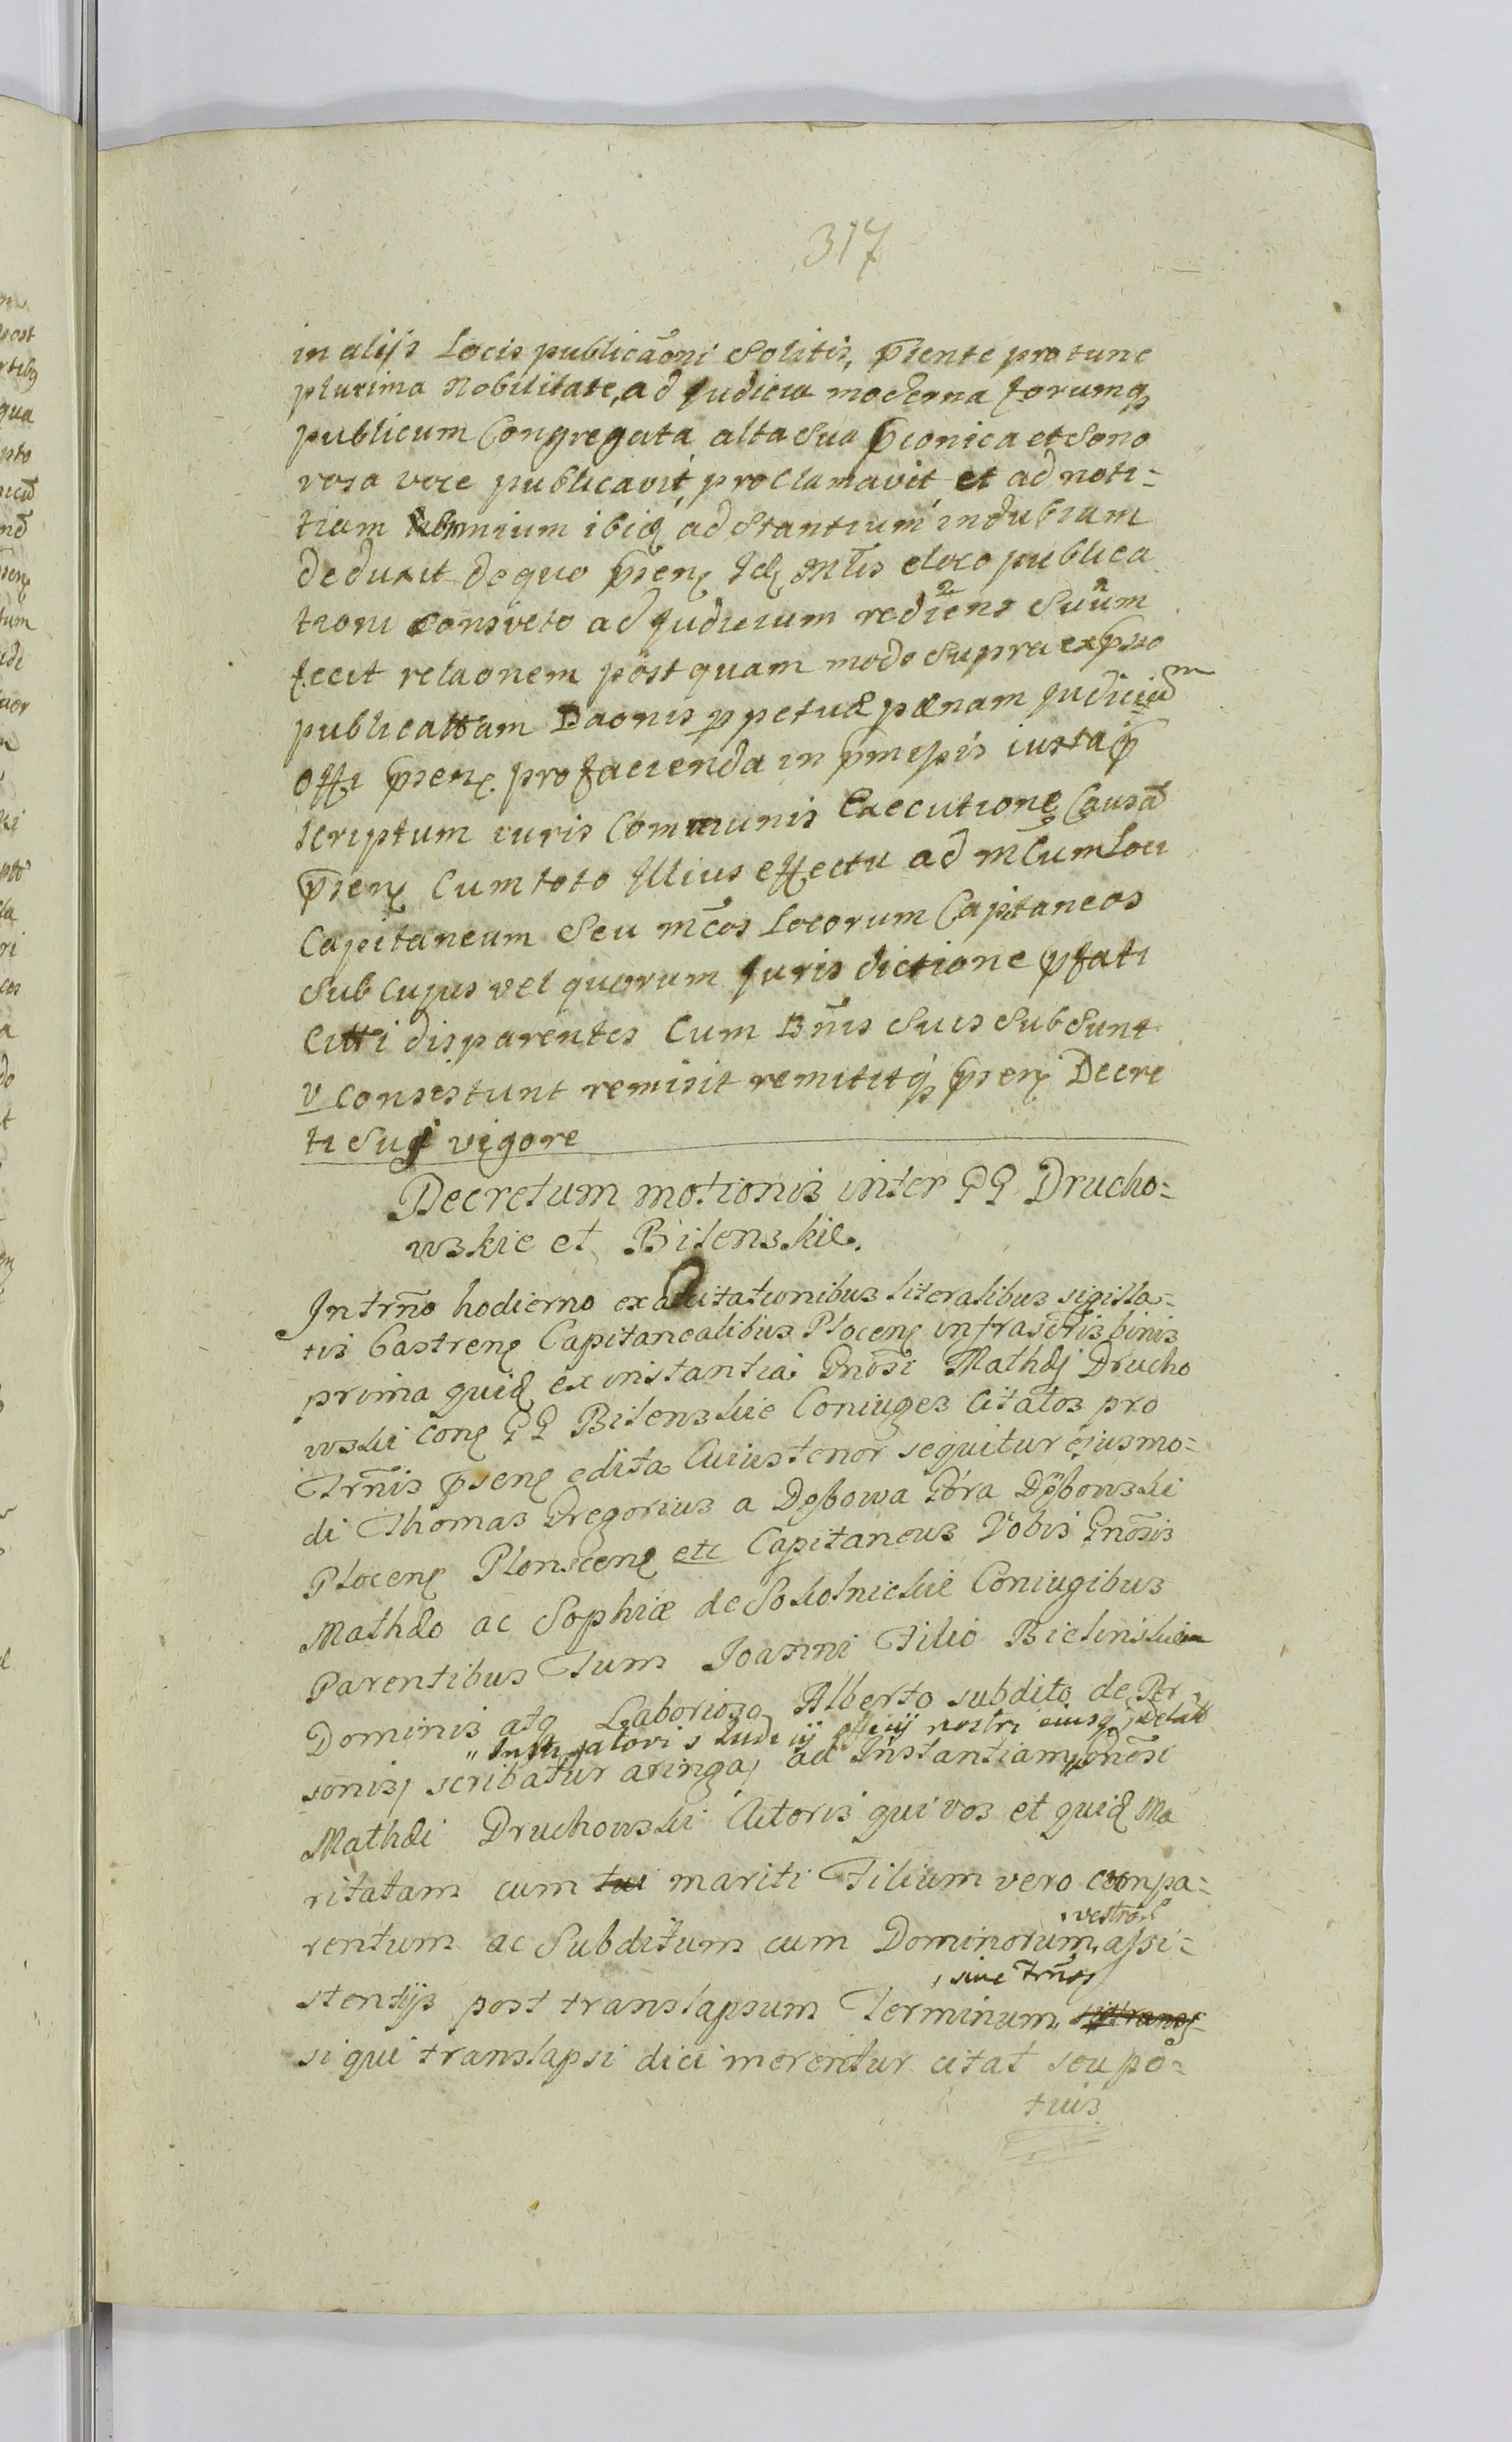 317
in alijs Locis publicaoni Solitis, psente pro tunc
plurima Nobilitate, ad Judicia moderna forumq
publicum Congregata alta Sua pconica et Sono
rosa voce publicavit, proclamavit et ad noti=
tiam omnium ibiq adstantium indubiam
deduxit de quo psen Idē Mlis eloco publica
tioni consveto ad Judicium rediens Suam
fecit relaonem postquam modo Supra expsso
publicattam Baonis ppetuæ pænam Judiciū
offi psen pro facienda in pmissis iuxta p
scriptum iuris Communis Executione Causā
psen Cum toto Illius effectu ad mcum Loci
Capitaneum Seu mcos Locorum Capitaneos
Sub Cujus vel quorum Jurisdictione pfati
Citti disparentes Cum Bnis Suis Subsunt
v consistunt remisit remititq psen Decre
ti Sui vigore
Decretum motionis inter GG Drucho=
wskie et Bilenskie.
In trno hodierno ex a Citationibus literalibus sigilla=
tis Castren Capitanealibus Plocen infrascris binis
prima quid ex instantia Gnosi Mathæj Drucho
wski con GG Bilenskie Coniuges Citatos pro
Trnis psen edita Cuius tenor sequitur ejusmo=
di Thomas Gregorius a Dębowa Góra Dębowski
Plocen Plonscen etc Capitaneus Vobis Gnosis
Mathæo ac Sophiæ de Sokolnickie Coniugibus
Parentibus Tum Joanni Filio Bielinskie
Dominis atq Laborioso Alberto subdito de Per
Instigatoris Judicij officij nostri eiusq delat
sonis, scribatur aringa, ad Instantiam, Gnosi
Mathæi Druchowski Actoris qui vos et quid Ma
ritatam cum tui mariti Filium vero cum pa=
vestror
rentum ac Subditum cum Dominorum assi=
sive Trnos
stentijs post translapsum Terminum
si qui translapsi dici merentur citat seu po=
tius